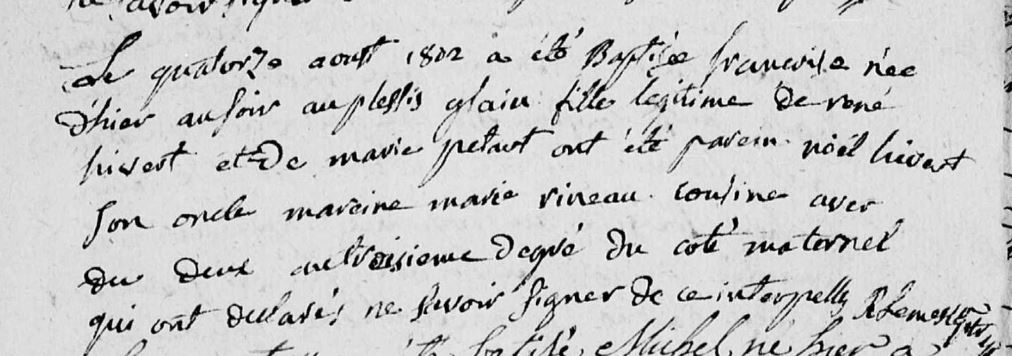 Le quatorze aoust 1802 a été Baptisée francoise née
d'hier au soir au plessis glain fille legitime de rené
huvert et de marie petart ont été parein nöél huvert
son oncle mareine marie rineau cousine
du deux au troisieme degré du coté maternel
qui ont declarés ne savoir signer de ce interpellés